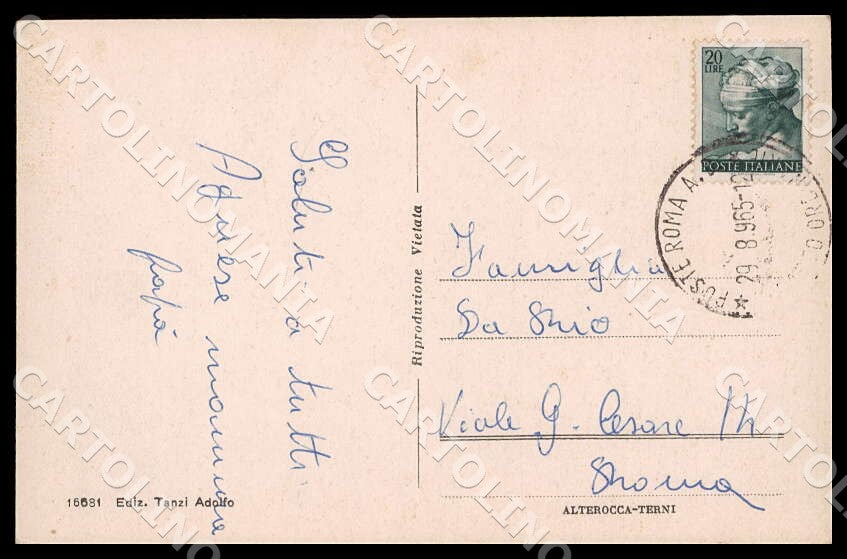 Saluti a tutti
Agnese mamma
papà
16681 Ediz. Tanzi Adolfo
Riproduzione Vietata
20
LIRE
POSTE ITALIANE
POSTE ROMA A.
29 8 965-12
Famiglia
Da Rio
Viale G. Cesare
Roma
ALTEROCCA-TERNI
CARTOLINOMANIA
CARTOLINOMANIA
CARTOLINOMANIA
CARTOLINOMANIA
CARTOLINOMANIA
CARTOLINOMANIA